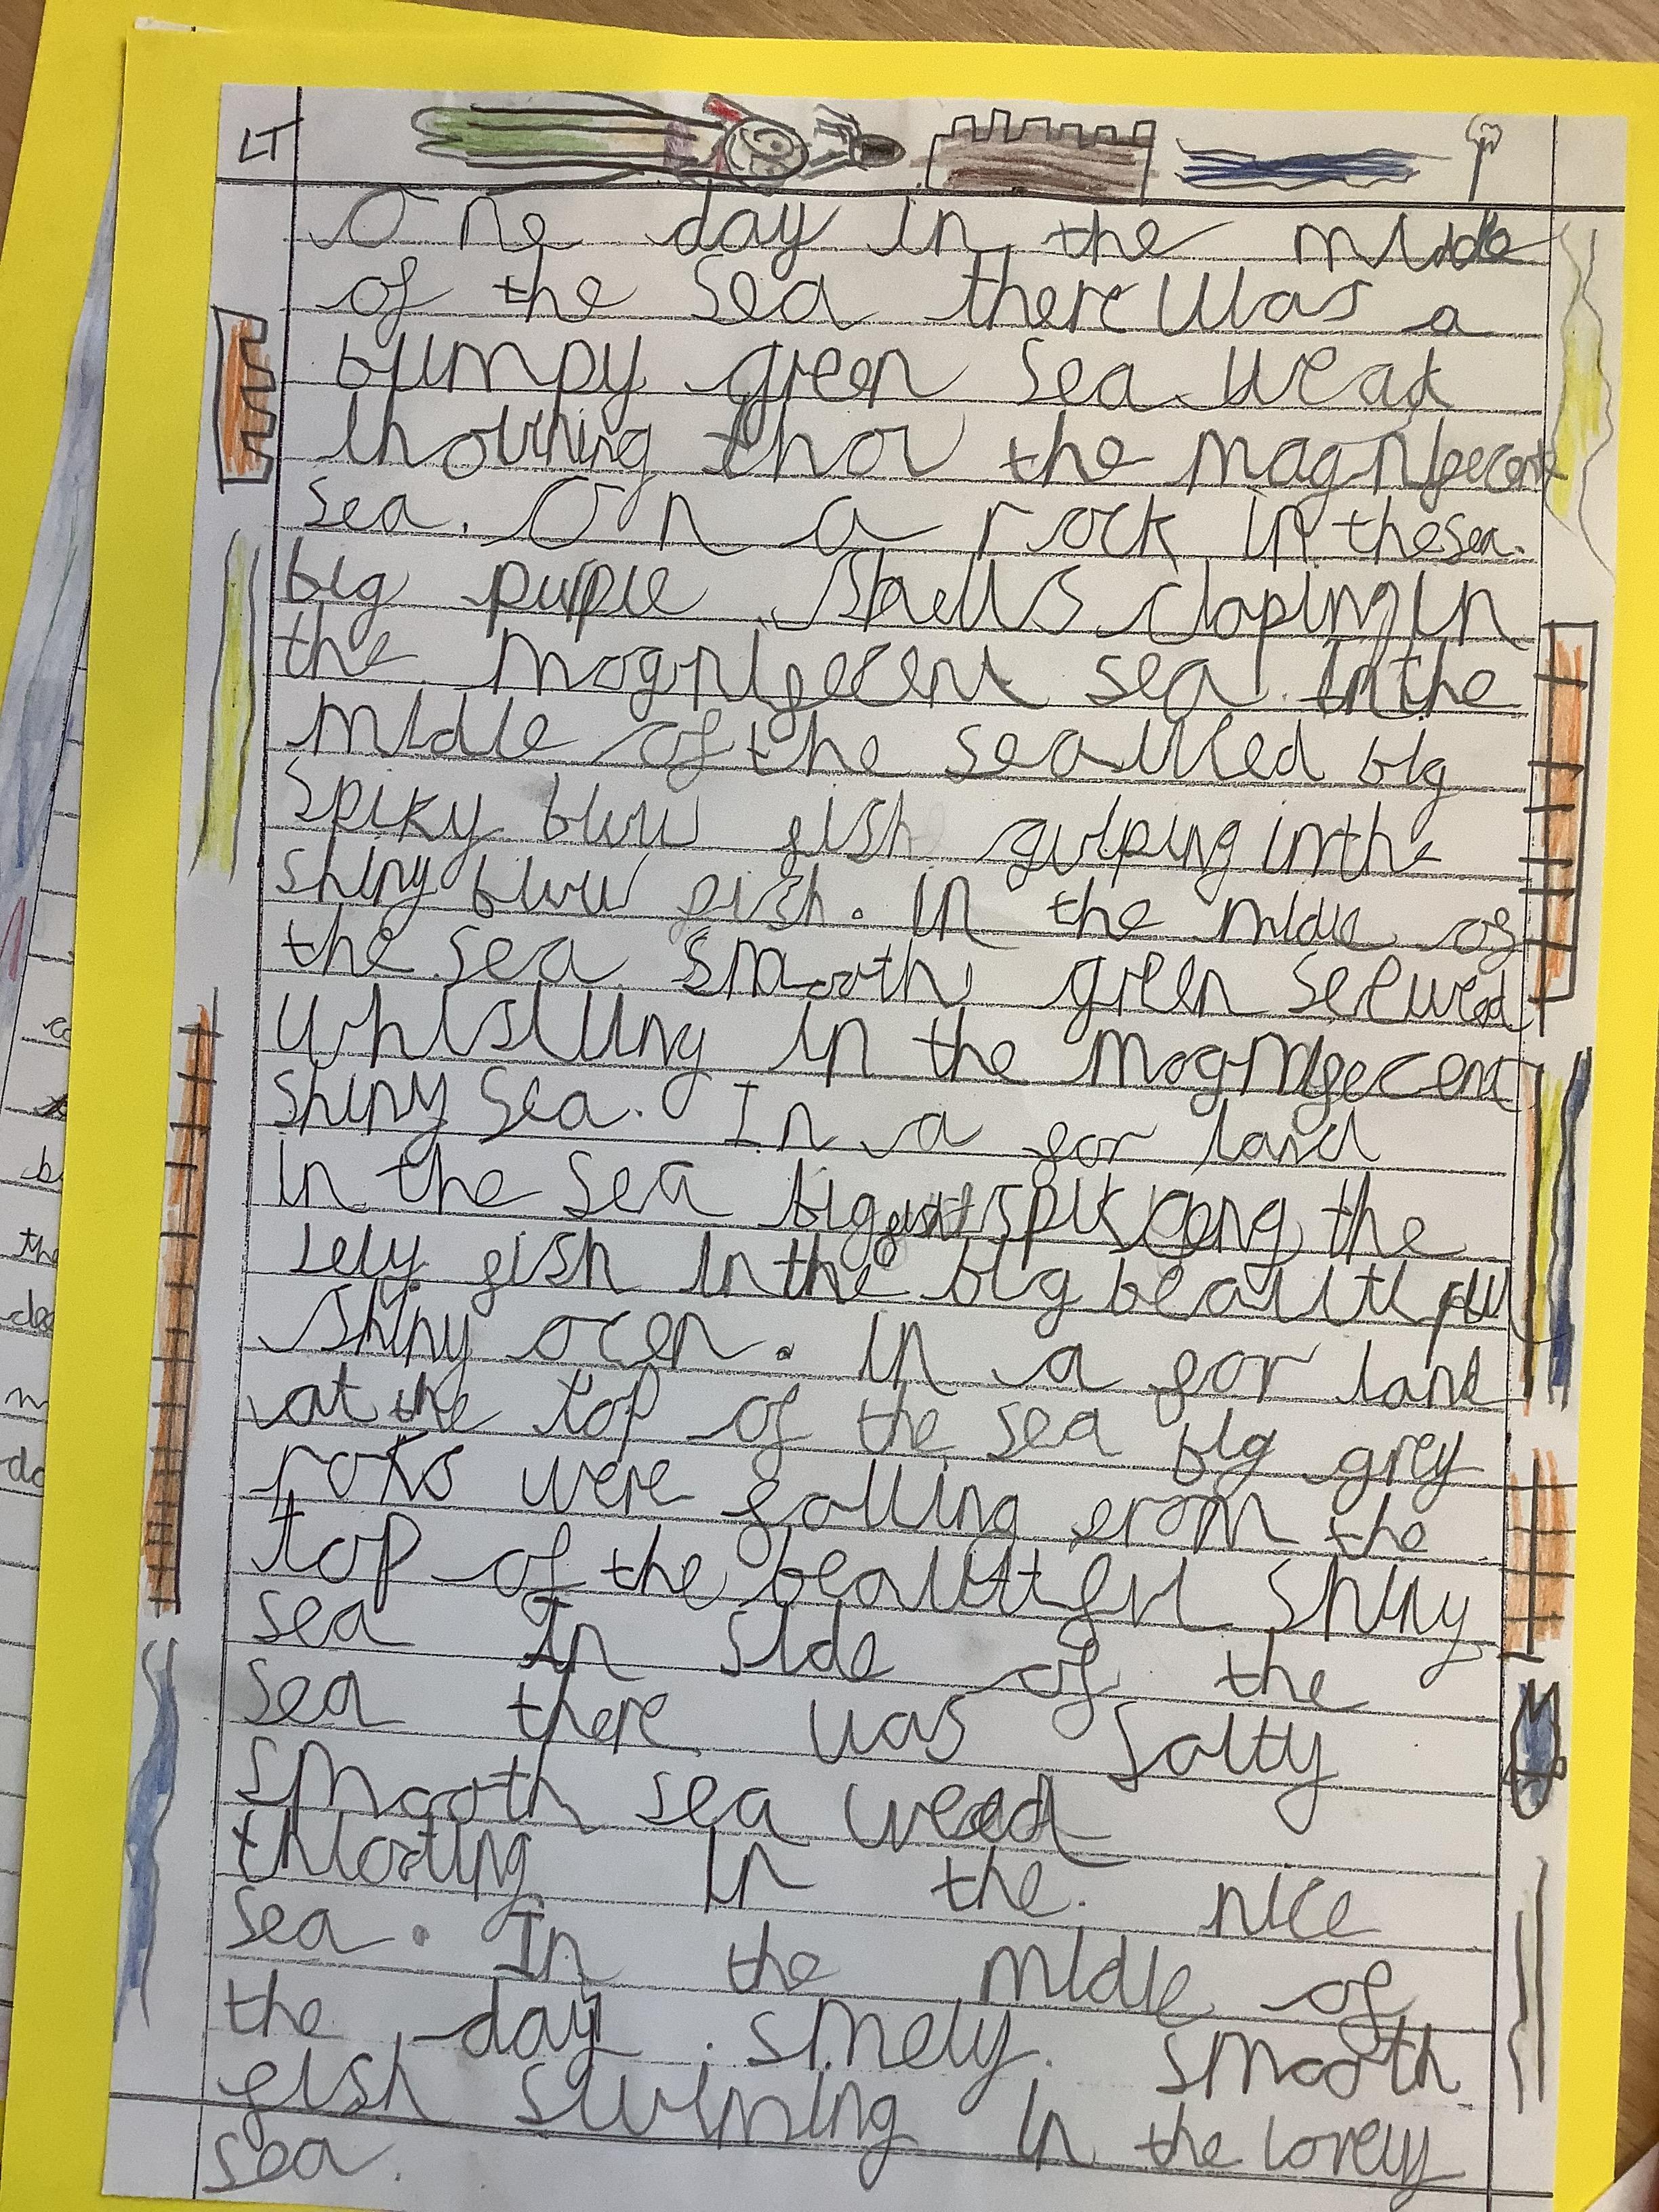 LT
One day in the middle
of the sea there was a
bumpy green sea wead
the magnifecent
sea. On a rock in the sea.
big purple shells claping in
the magnifecent sea. In the
midle of the sea lied big
spiky bluw fish gulping in the
shiny bluw fish. in the midle of
the sea smooth green seewed
whistling in the magnifecent
shiny sea. In a far land
in the sea big the
fish in the big beautiful
shiny ocen. in a far land
at the top of the sea big grey
roks were falling from the
top of the beautiful shiny
sea In side of the
sea there was salty
smooth sea weed
in the nice
sea. In the midle of
the day smely smooth
fish swiming in the lovely
sea.